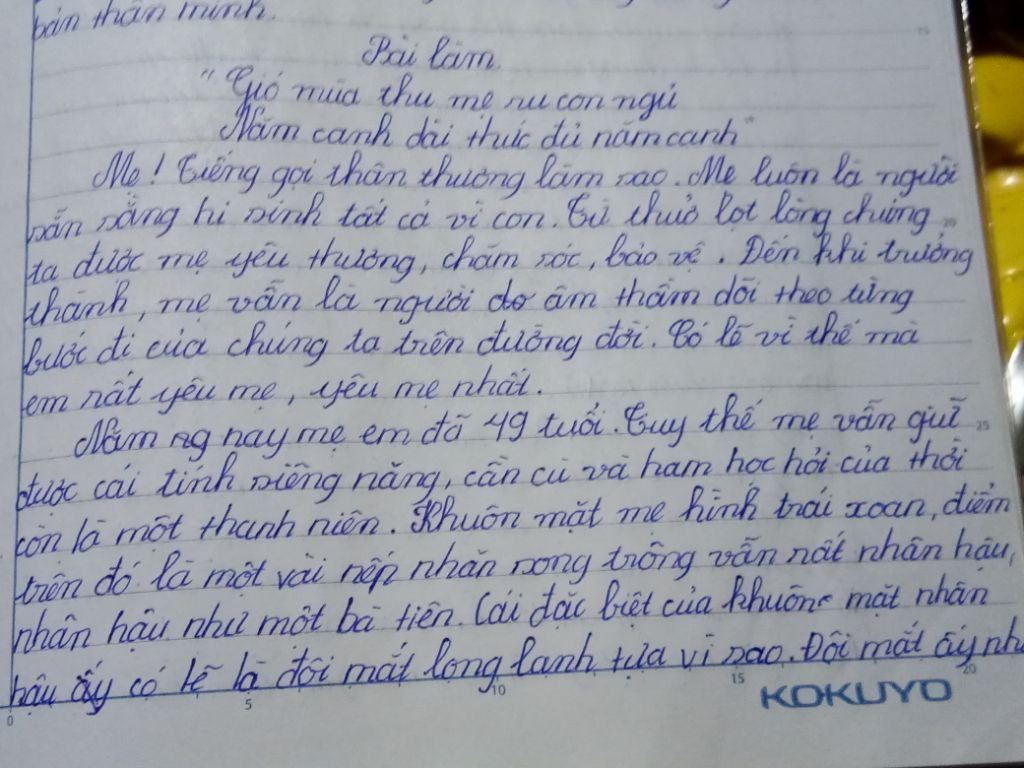 bản thân mình.
Bài làm.
"Gió mùa thu mẹ ru con ngủ
Năm canh dài thức đủ năm canh"
Mẹ! Tiếng gọi thân thương làm sao. Mẹ luôn là người
sẵn sằng hi sinh tất cả vì con. Từ thuở lọt lòng chúng
ta được mẹ yêu thương, chăm sóc, bảo vệ. Đến khi trưởng
thành, mẹ vẫn là người âm thầm dõi theo từng
bước đi của chúng ta trên đường đời. Có lẽ vì thế mà
em rất yêu mẹ, yêu mẹ nhất.
Năm nay mẹ em đã 49 tuổi. Tuy thế mẹ vẫn giữ
được cái tính siêng năng, cần cù và ham học hỏi của thời
còn là một thanh niên. Khuôn mặt mẹ hình trái xoan, điểm
trên đó là một vài nếp nhăn song trông vẫn rất nhân hậu,
nhân hậu như một bà tiên. Cái đặc biệt của khuôn mặt nhân
hậu ấy có lẽ là đôi mắt long lanh tựa vì sao. Đôi mắt ấy nh
0 5 10 15 20
25
KOKUYO